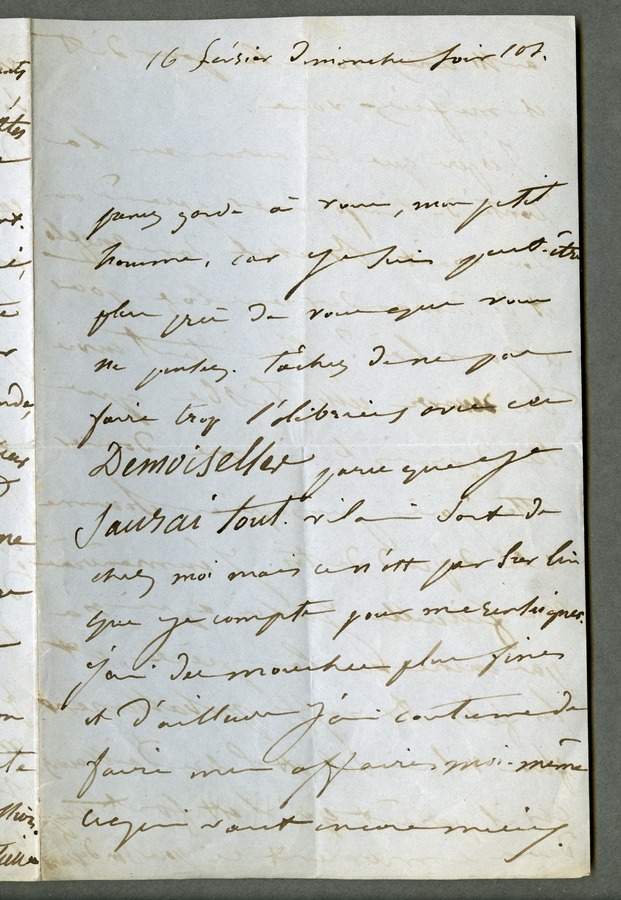 16 février Dimanche soir 10h.
prenez garde à vous, mon petit
homme, car je suis peut-être
plus près de vous que vous
ne pensez. Tâchez de ne pas
faire trop l'olibrius avec ces
Demoiselles parce que je
saurai tout. vilain sort de
chez moi mais ce n'est pas sur lui
que je compte pour me renseigner.
J'ai des mouches plus fines
et d'ailleurs j'ai coutume de
faire mes affaires moi-même
ce qui vaut encore mieux.